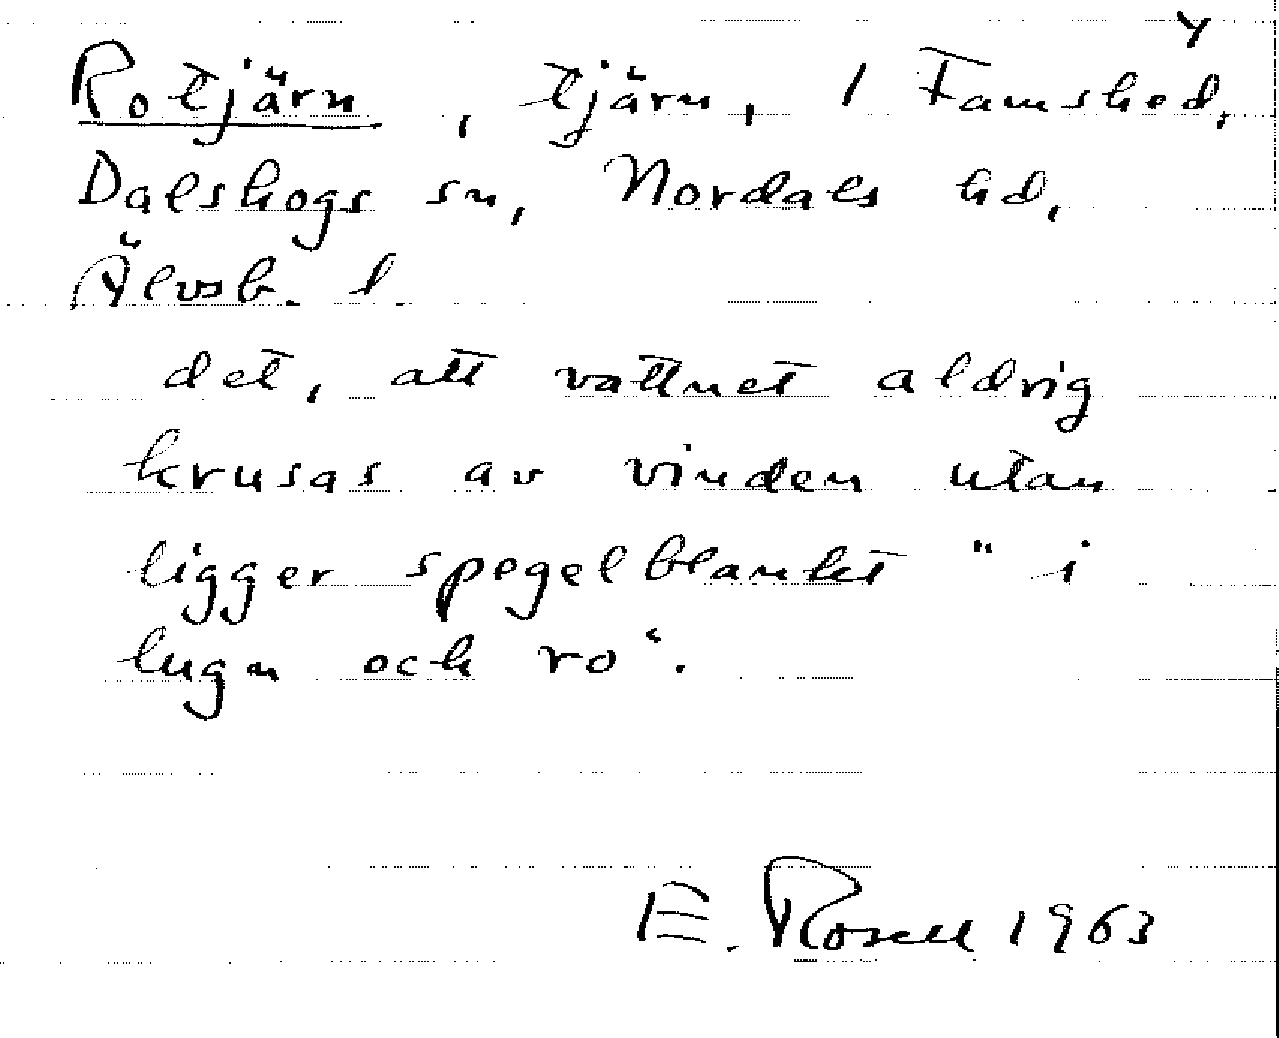 Y
Rotjärn, tjärn, / Famshed,
Dalskogs sn, Nordals hd,
Älvsb. l.
det, att vattnet aldrig
krusas av vinden utan
ligger spegelblankt "i
lugn och ro".
E. Rosell 1963